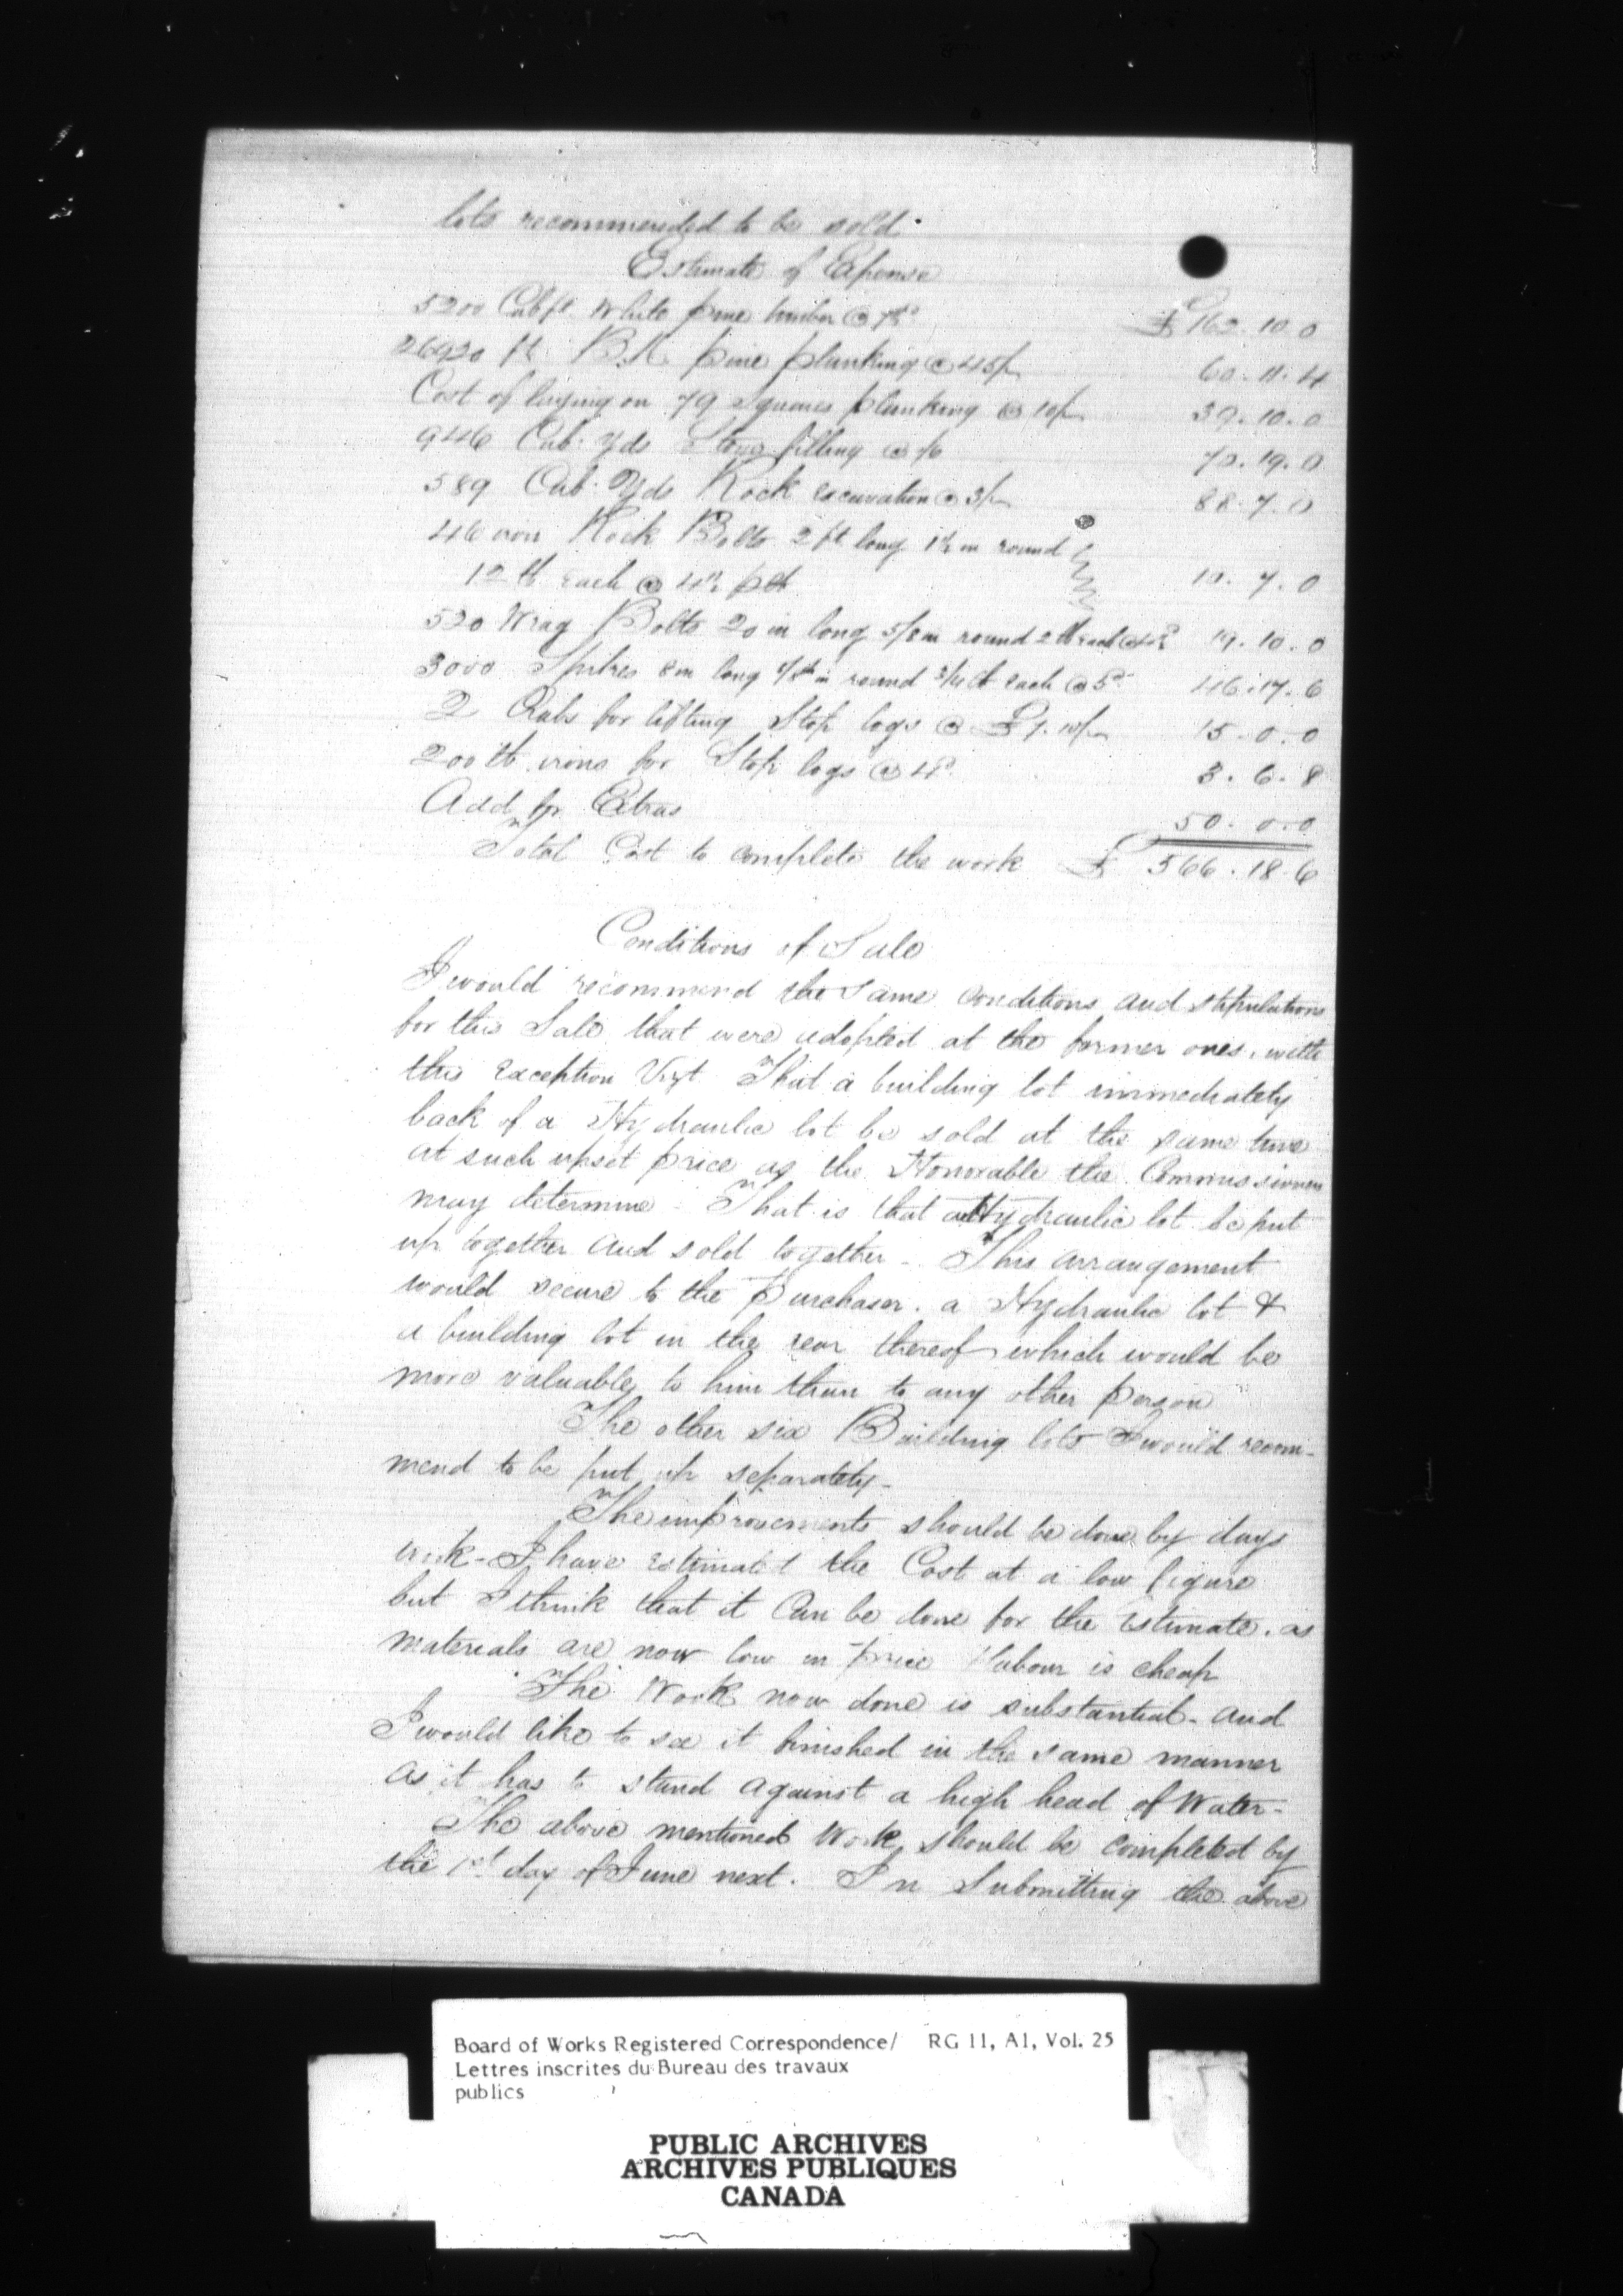 lots recommended to be sold.
Estimate of Expense
5200 Cub ft. White pine timber @ 7½d £ 162. 10. 0
26920 ft B.M pine planking @ 45/- 60. 11. 4
Cost of laying on 79 Squares planking @ 10/- 39. 10. 0
946 Cub. Yds Stone filling @ 1/6 70. 19. 0
589 Cub. Yds Rock excavation @ 3/- 88. 7. 0
46 iron Rock Bolts 2 ft long 1½ in round
12 lb each @ 4½ p lb 10. 7. 0
520 Wrag Bolts 20 in long 5/8 in round 2 lb each @ 4½d 19. 10. 0
3000 Spikes 8 in long in round 3/4 lb each @ 5d 46. 17. 6
2 Crabs for lifting Stop logs @ £7. 10/- 15. 0. 0
200 lb irons for Stop logs @ 4d 3. 6. 8
Add for Extras 50. 0. 0
Total Cost to complete the work £ 566. 18. 6
Conditions of Sale
I would recommend the same conditions and stipulations
for this Sale that were adopted at the former ones, with
this exception Vizt. That a building lot immediately
back of a Hydraulic lot be sold at the same time
at such upset price as the Honorable the Commissioners
may determine - That is that a Hydraulic lot be put
up together and sold together - This arrangement
would secure to the Purchaser. a Hydraulic lot &
a building lot in the rear thereof which would be
more valuable to him than to any other person
The other six Building lots I would recom-
mend to be put up separately -
The improvements should be done by days
work - I have estimated the Cost at a low figure
but I think that it can be done for the Estimate. as
materials are now low in price & labour is cheap
The Work now done is substantial - and
I would like to see it finished in the same manner
as it has to stand against a high head of Water -
The above mentioned Work should be completed by
the 1st day of June next. In Submitting the above
Board of Works Registered Correspondence/ RG 11, A1, Vol. 25
Lettres inscrites du Bureau des travaux
publics
PUBLIC ARCHIVES
ARCHIVES PUBLIQUES
CANADA